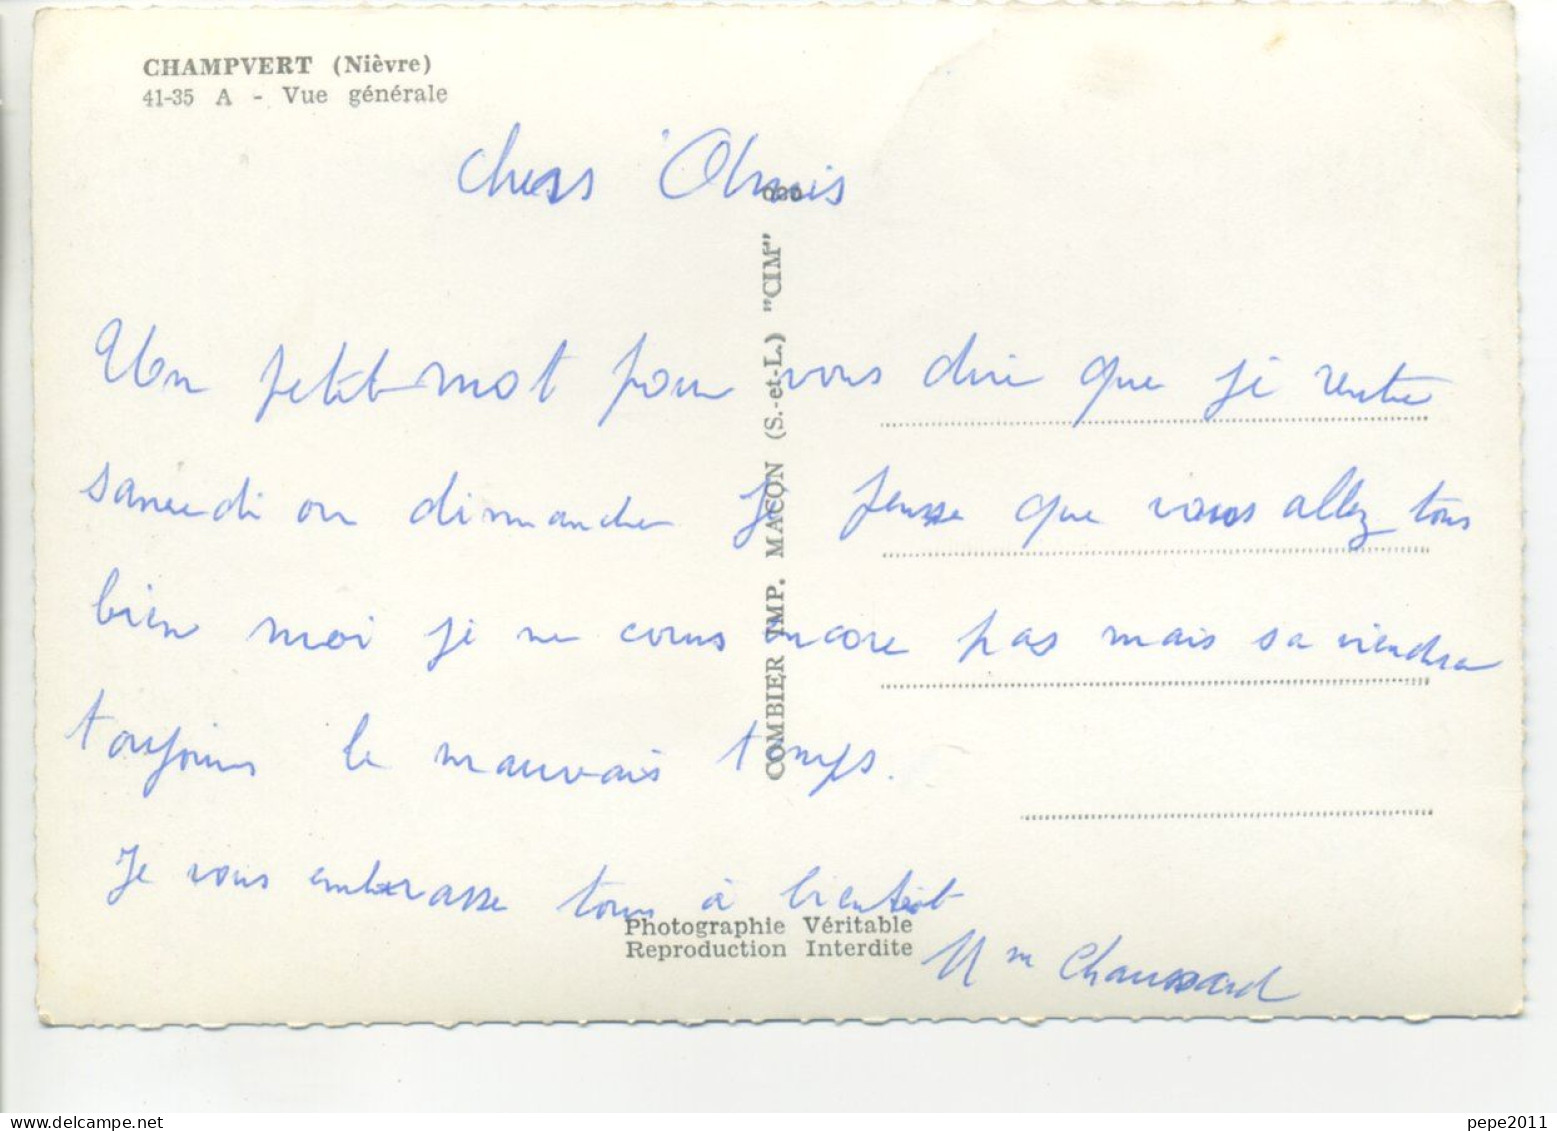 CHAMPVERT (Nièvre)
41-35 A - Vue générale
chers Amis
Un petit mot pour vous dire que je rentre
samedi ou dimanche Je pense que vous allez tous
bien moi je ne cours encore pas mais sa viendra
toujours le mauvais temps.
Je vous embrasse tous à bientôt
Mm Chaussard
COMBIER IMP. MACON (S.-et-L.) "CIM"
Photographie Véritable
Reproduction Interdite
delcampe.net
pepe2011